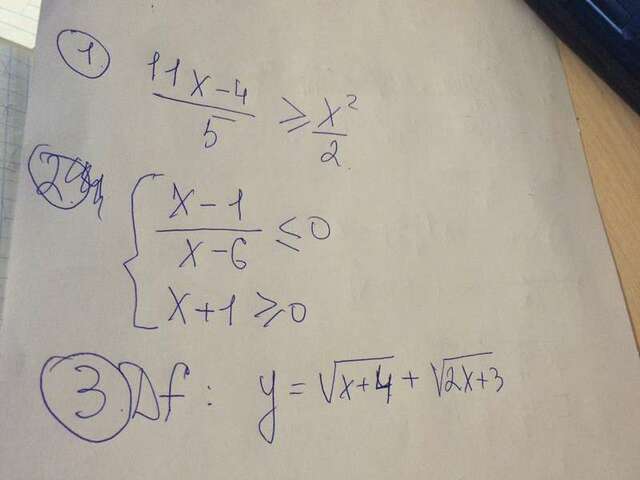 1
11x-4/5 ≥ x²/2
2
{ x-1/x-6 ≤ 0
x+1 ≥ 0
3 Df: y = √x+4 + √2x+3